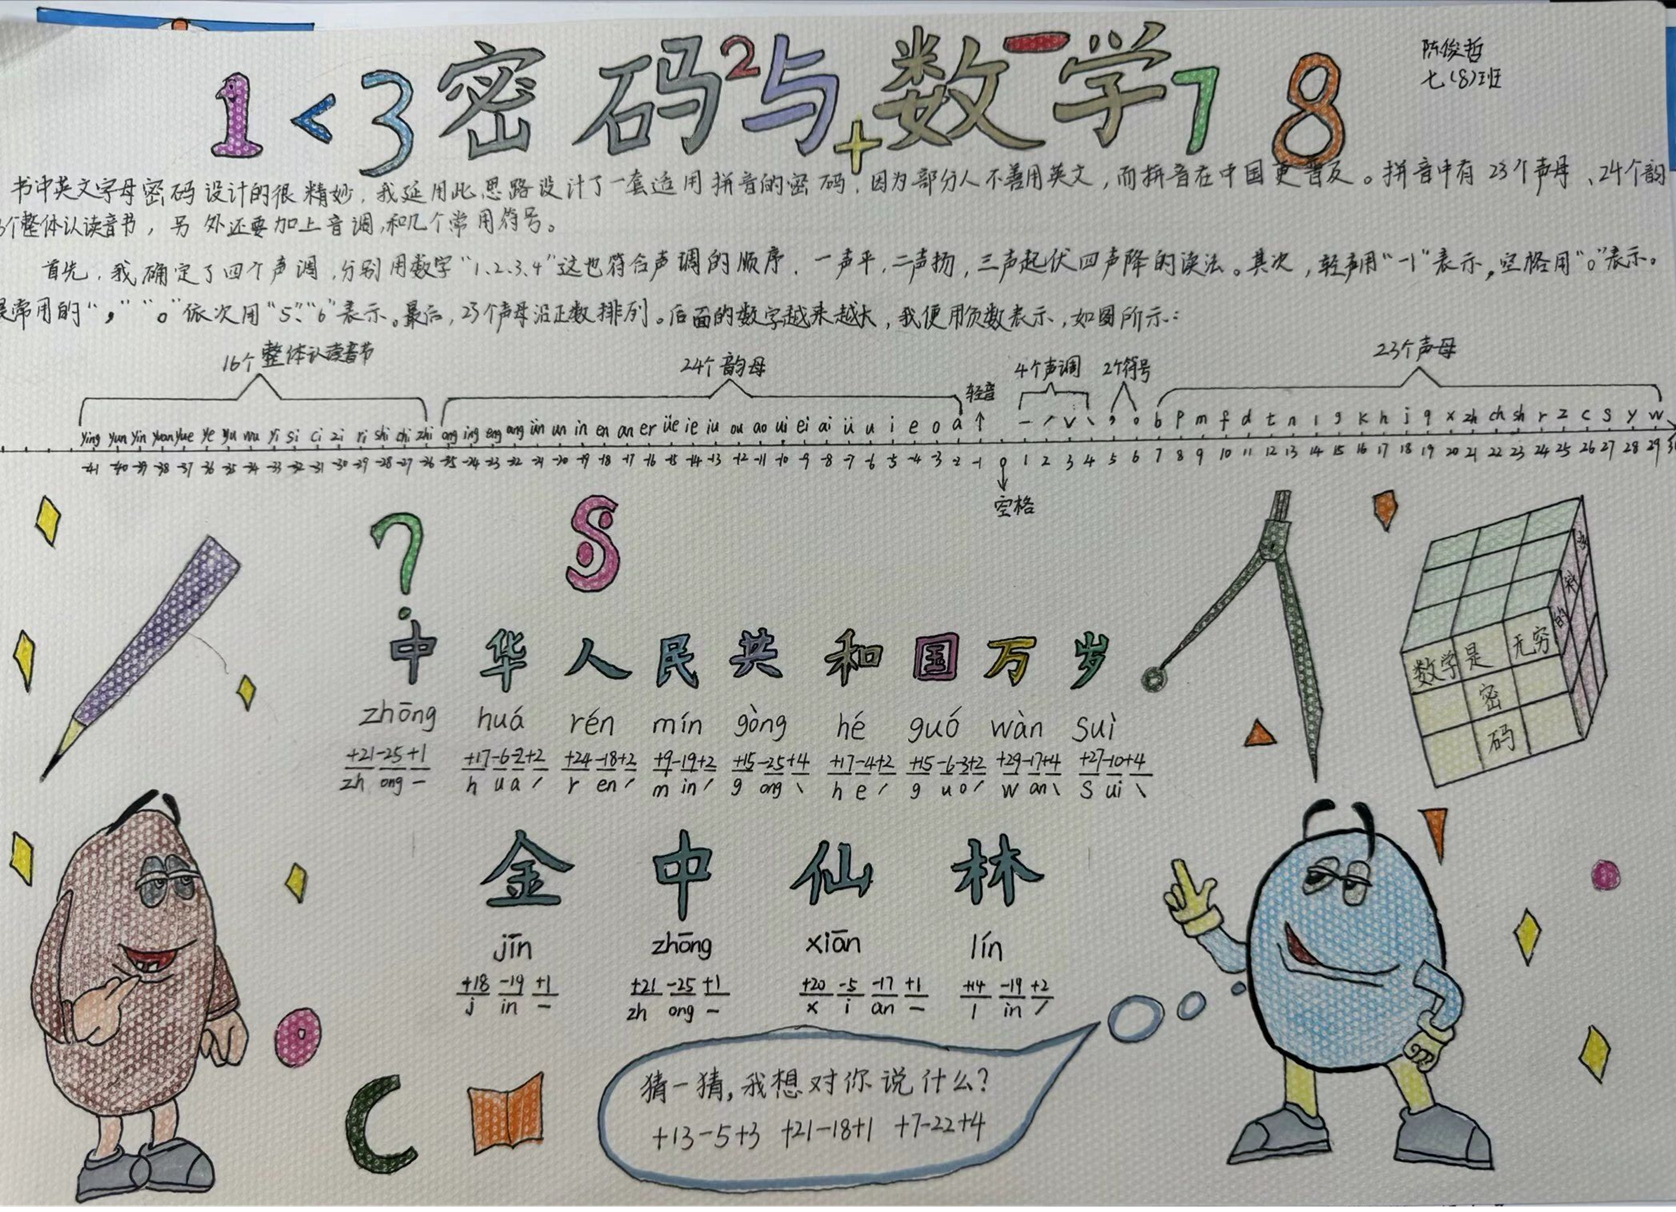 1 < 3 密 码 2 与 + 数 - 学 7 8
陈俊哲
七(8)班
书中英文字母密码设计的很精妙,我延用此思路设计了一套适用拼音的密码,因为部分人不善用英文,而拼音在中国更普及。拼音中有23个声母、24个韵
6个整体认读音节,另外还要加上音调,和几个常用符号。
首先,我确定了四个声调,分别用数字“1、2、3、4”这也符合声调的顺序,一声平,二声扬,三声起伏四声降的读法。其次,轻声用“-1”表示,空格用“0”表示。
最常用的“,”“。”依次用“5”、“6”表示。最后,23个声母沿正数排列。后面的数字越来越长,我便用负数表示,如图所示:
16个整体认读音节 24个韵母 轻音 4个声调 2个符号 23个声母
ying yun yin yuan yue ye yu wu yi si ci zi ri shi chi zhi ong ing eng ang ün un in en an er üe ie iu ou ao ui ei ai ü u i e o a ↑ — ˊ ˇ ˋ , 。 b p m f d t n l g k h j q x zh ch sh r z c s y w
-41 -40 -39 -38 -37 -36 -35 -34 -33 -32 -31 -30 -29 -28 -27 -26 -25 -24 -23 -22 -21 -20 -19 -18 -17 -16 -15 -14 -13 -12 -11 -10 -9 -8 -7 -6 -5 -4 -3 -2 -1 0 1 2 3 4 5 6 7 8 9 10 11 12 13 14 15 16 17 18 19 20 21 22 23 24 25 26 27 28 29
空格
? 8
中 华 人 民 共 和 国 万 岁
zhōng huá rén mín gòng hé guó wàn suì
+21-25+1 +17-6-2+2 +24-18+2 +9-19+2 +15-25+4 +17-4+2 +15-6-3+2 +29-17+4 +27-10+4
zh ong — h u a ˊ r en ˊ m in ˊ g ong ˋ h e ˊ g u o ˊ w an ˋ s ui ˋ
数学是无穷
密
码
的
金 中 仙 林
jīn zhōng xiān lín
+18 -19 +1 +21 -25 +1 +20 -5 -17 +1 +14 -19 +2
j in — zh ong — x i an — l in ˊ
猜一猜,我想对你说什么?
+13-5+3 +21-18+1 +7-22+4